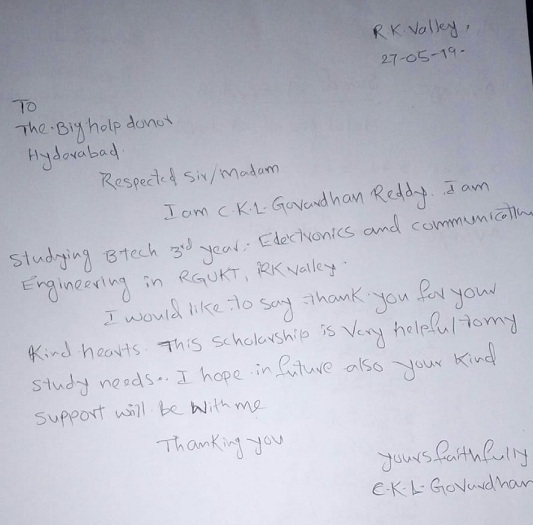 R.K. Valley,
27-05-19.
To
The Big help donor
Hyderabad.
Respected Sir/Madam
I am C.K.L. Govardhan Reddy. I am
Studying Btech 3rd year. Edectronics and communication
Engineering in RGUKT, RK valley.
I would like to say thank you for your
Kind hearts. This scholarship is Very helpful to my
study needs.. I hope in future also your Kind
support will be with me
Thanking you
yours faithfully
C.K.L. Govardhan